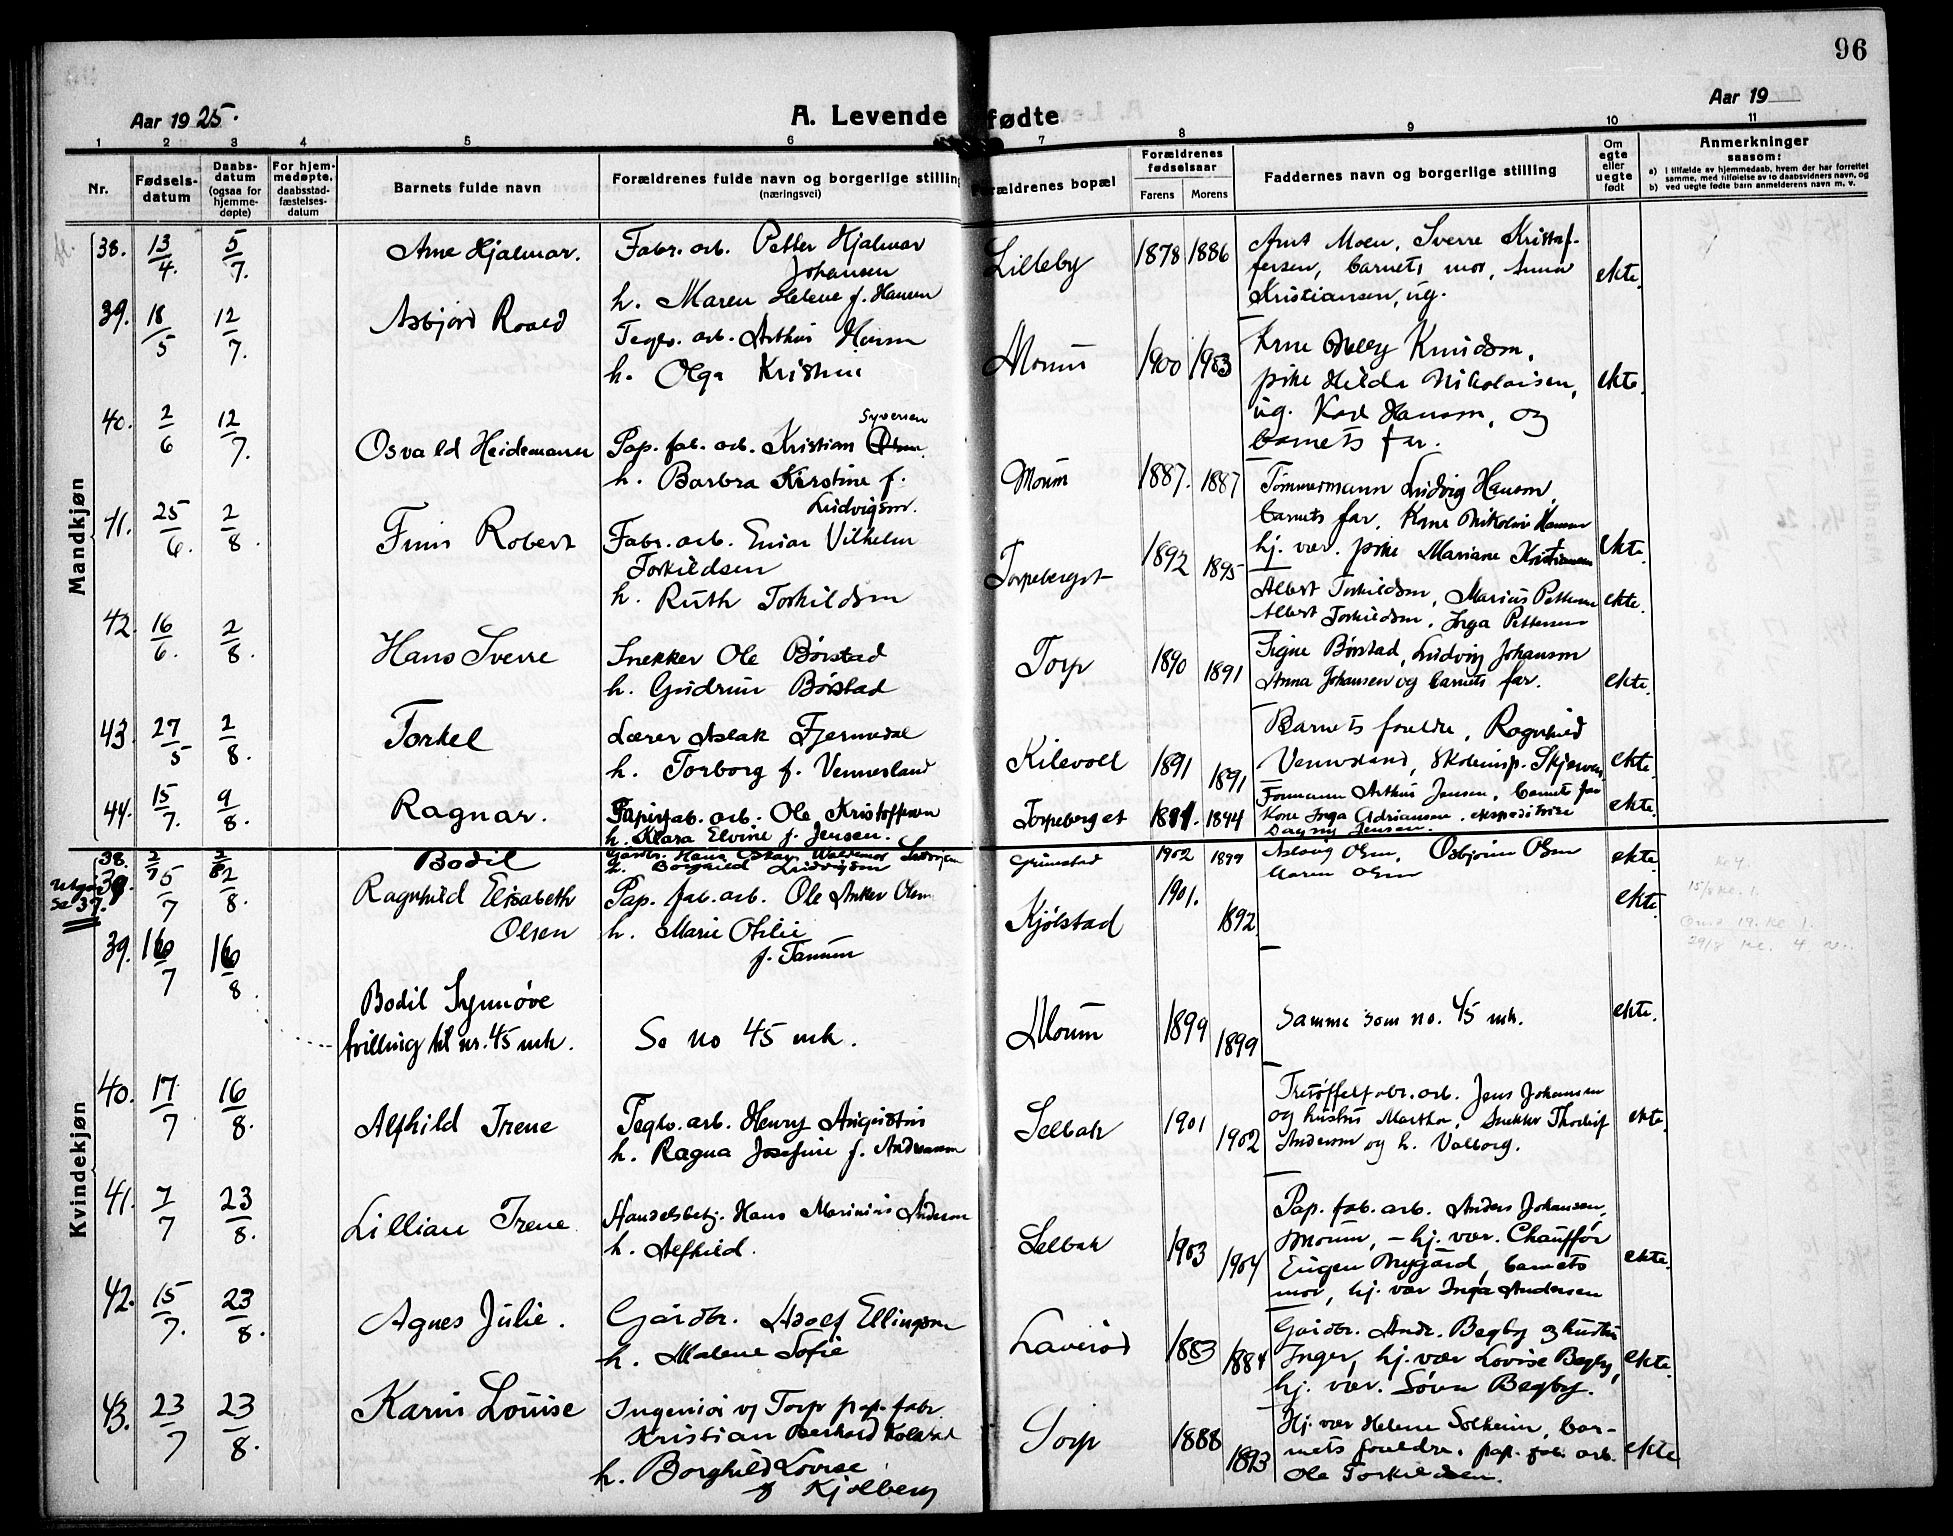 96
Aar 1925.
A. Levende fødte
Aar 19
1 2 3 4 5 6 7 8 9 10 11
Nr.
Fødsels-
datum
Daabs-
datum
(ogsaa for
hjemme-
døpte)
For hjem-
medøpte,
daabsstad-
fæstelses-
datum
Barnets fulde navn
Forældrenes fulde navn og borgerlige stilling
(næringsvei)
Forældrenes bopæl
Forældrenes
fødselsaar
Farens Morens
Faddernes navn og borgerlige stilling
Om
egte
eller
uegte
født
Anmerkninger
saasom:
a) i tilfælde av hjemmedaab, hvem der har forrettet
samme, med tilføielse av to daabsvidners navn, og
b) ved uegte fødte barn anmelderens navn m. v.
Mandkjøn
38. 13/4. 5/7. Arne Hjalmar. Fabr. arb. Petter Hjalmar
Johansen
h. Maren Helene f. Hansen
Lilleby 1878 1886
Arnt Moen, Sverre Kristof-
fersen, barnets mor, Anna
Kristiansen, ug.
ekte.
39. 18/5 12/7. Asbjørn Roald
Teglv. arb. Arthur Hansen
h. Olga Kristine
Moum 1900 1903
Kone Knudsen,
pike Hilda Nikolaisen,
ug. Karl Hansen, og
barnets far.
ekte.
40. 2/6 12/7. Osvald Heidemann
Syversen
Pap. fab. arb. Kristian Olsen
h. Barbra Kirstine f.
Ludvigsen.
Moum 1887. 1887
Tømmermann Ludvig Hansen,
barnets far, Kone Nikoline Hansen
hj. vær. pike Mariane Kristiansen
ekte.
41. 25/6. 2/8. Finn Robert
Fabr. arb. Einar Vilhelm
Torkildsen
h. Ruth Torkildsen
Torpeberget 1892 1895
Albert Torkildsen, Marius Pettersen
Albert Torkildsen, Inga Pettersen
ekte.
42. 16/6. 2/8. Hans Sverre
Snekker Ole Børstad
h. Gudrun Børstad
Torp 1890 1891
Signe Børstad, Ludvig Johansen
Anna Johansen og barnets far.
ekte.
43. 27/5 2/8. Torkel
Lærer Aslak Fjermedal
h. Torborg f. Vennesland
Kilevold 1891 1891
Barnets foreldre, Ragnhild
Vennesland, Skoleinsp.
ekte.
44. 15/7. 9/8. Ragnar.
Papirfab. arb. Ole Kristoffersen
h. Klara Elvine f. Jensen.
Torpeberget 1881. 1894
Formann Arthur Jensen, barnets far
Kone Inga Adriansen, ekspeditrise
Dagny Jensen.
ekte.
Kvindekjøn
38. 2/7 2/8 Bodil
Gårdbr. Hans Oskar Waldemar Ludvigsen
h. Borghild Ludvigsen
Grimstad 1902 1897
Aslaug Olsen, Osbjørn Olsen
Maren Olsen
ekte.
Utgår
Se 37.
39. 5/7 2/8. Ragnhild Elisabeth
Olsen
Pap. fab. arb. Ole Anker Olsen
h. Marie Otilie
f. Tamum
Kjølstad 1901. 1892.
ekte.
39. 16/7 16/8. Bodil Synnøve
tvilling til nr. 45 mk.
Se no 45 mk.
Moum 1899 1899
Samme som no. 45 mk.
ekte.
40. 17/7 16/8. Alfhild Irene
Teglv. arb. Henry Augustin
h. Ragna Josefine f. Andreassen
Selbak 1901 1902
Tretøffelfabr. arb. Jens Johansen
og hustru Martha, Snekker Thorleif
Andersen og h. Valborg.
ekte.
41. 7/7 23/8. Lillian Irene
Handelsbetj. Hans Marinius Andersen
h. Alfhild.
Selbak 1903 1904
Pap. fab. arb. Anders Johansen,
Moum, – hj. vær. Chauffør
Eugen Nygård, barnets
mor, hj. vær Inga Andersen
ekte.
42. 15/7. 23/8. Agnes Julie.
Gårdbr. Adolf Ellingsen
h. Malene Sofie
Laverød 1883 1884
Gårdbr. Andr. Begby og hustru
Inger, hj. vær Lovise Begby,
hj. vær. Søren Begby.
ekte.
43. 23/7 23/8. Karin Louise
Ingeniør v/ Torp pap. fabr.
Kristian Bernhard Kolstad
h. Borghild Lovise
f Kjølberg
Torp 1888 1893
Hj. vær Helene Solheim, bar-
nets foreldre, pap. fab. arb.
Ole Torkildsen.
ekte